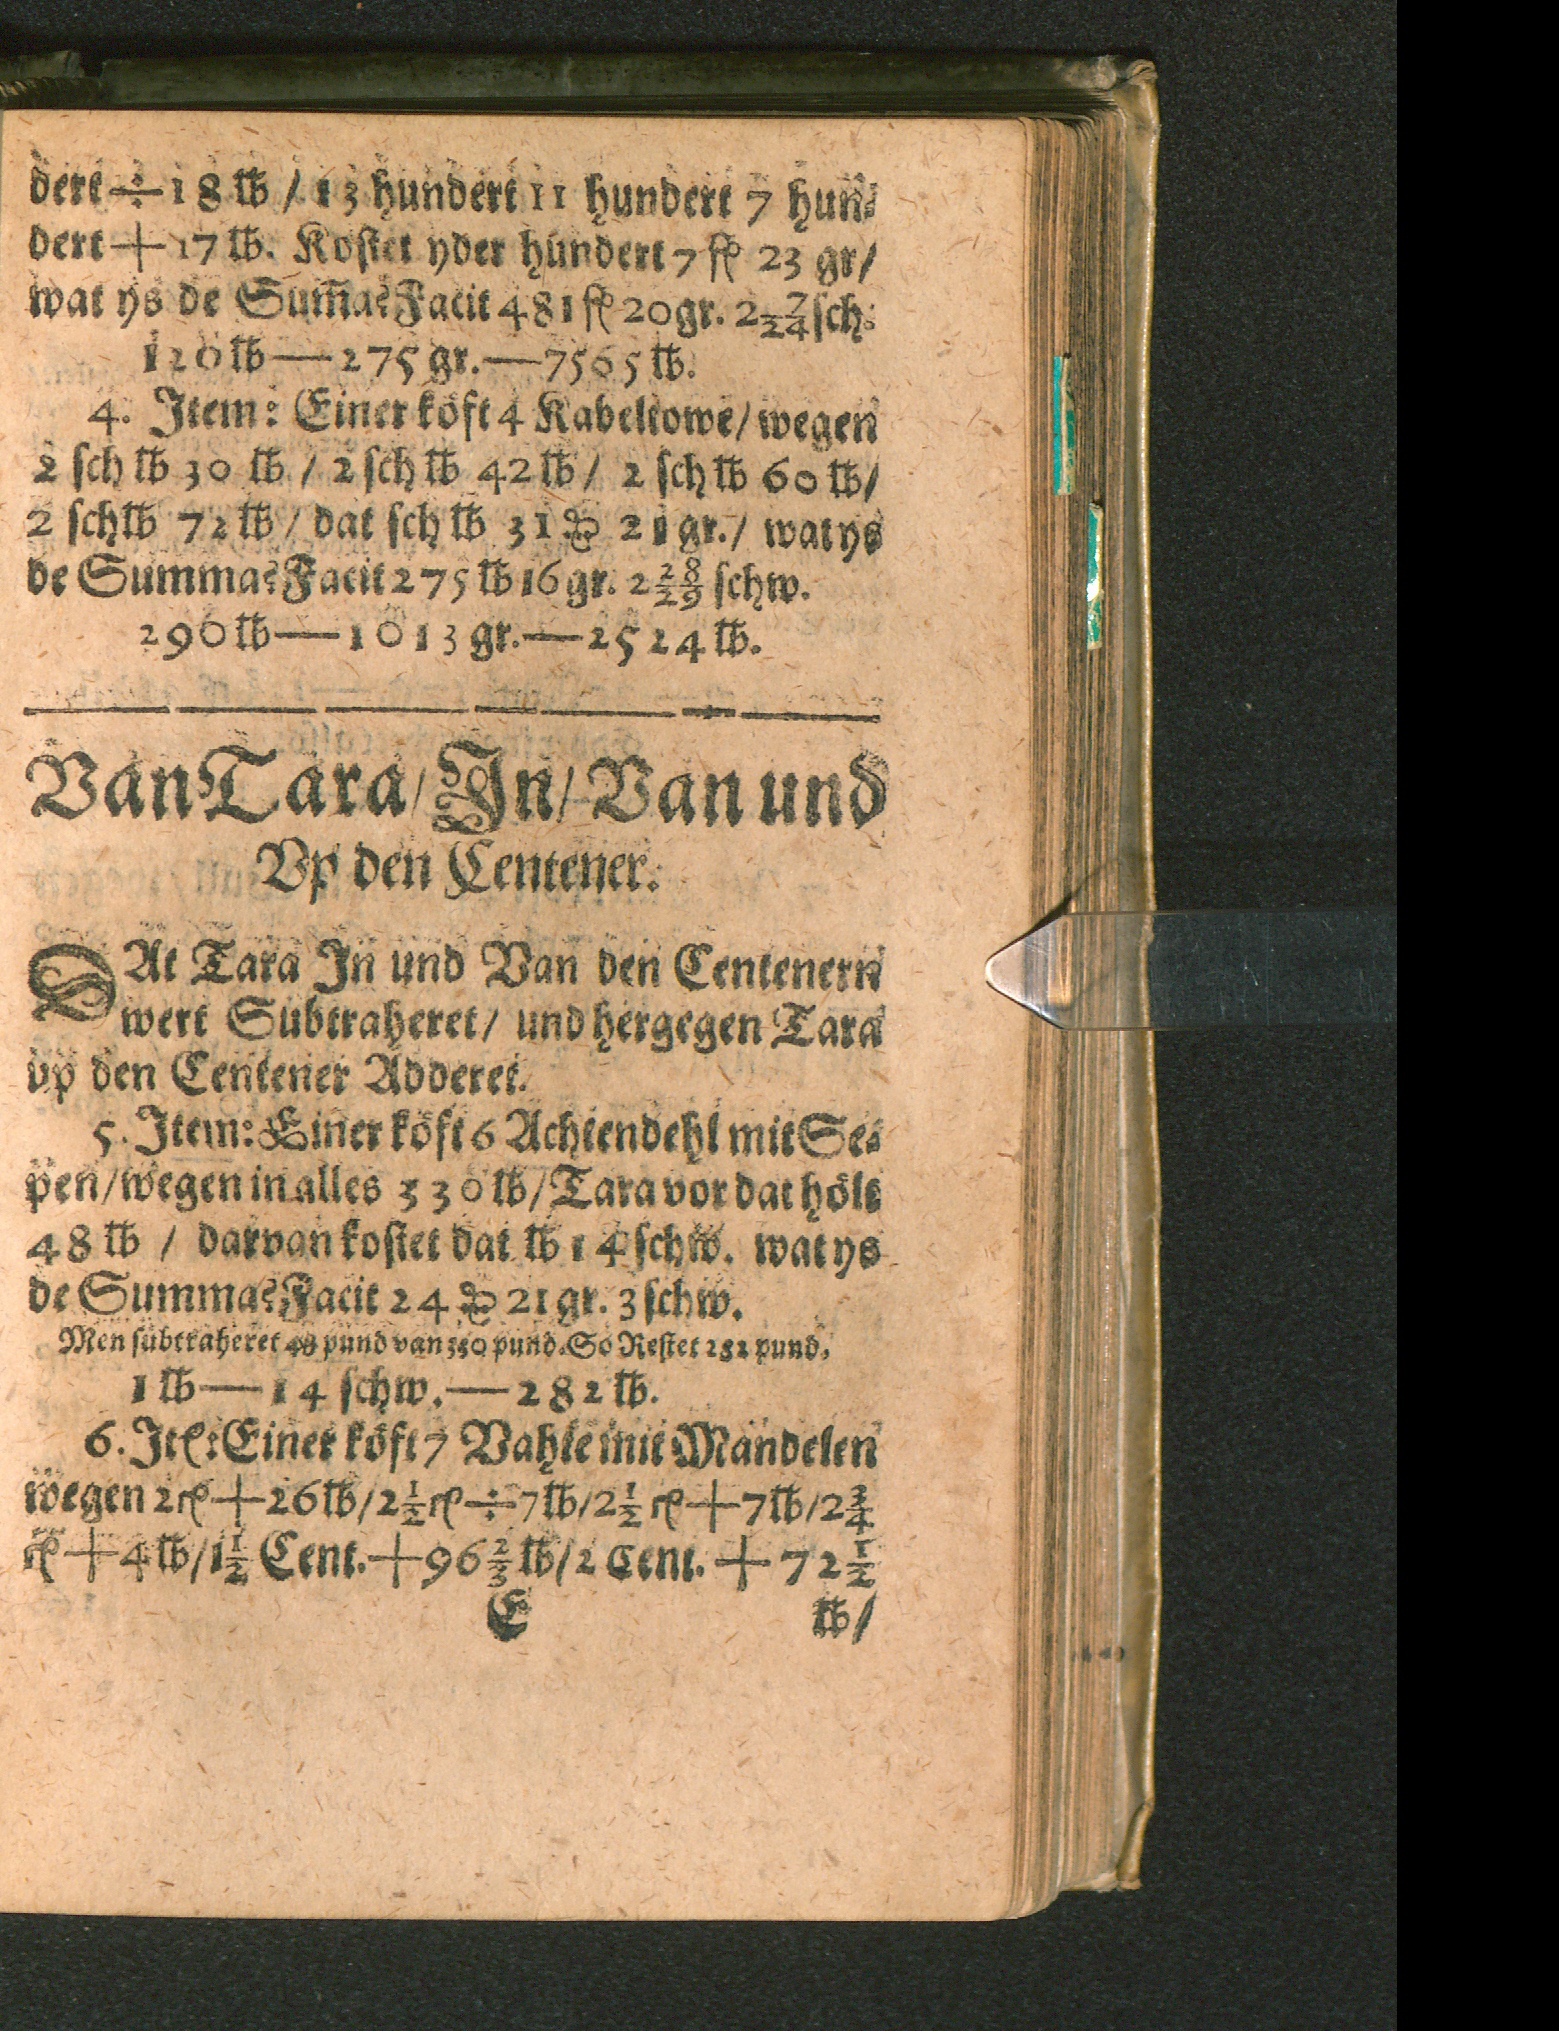 dert ÷ 18 ℔ / 13 hundert 11 hundert 7 hun⸗
dert + 17 ℔. Kostet yder hundert 7 fl 23 gr/
wat ys de Sum̃a? Facit 481 fl 20 gr. 2 7/24 sch.
120 ℔ — 275 gr. — 7565 ℔.
4. Item: Einer köft 4 Kabeltowe/ wegen
2 sch ℔ 30 ℔ / 2 sch ℔ 42 ℔ / 2 sch ℔ 60 ℔/
2 sch℔ 72 ℔ / dat sch ℔ 31 ₰ 21 gr./ wat ys
de Summa? Facit 275 ℔ 16 gr. 2 28/29 schw.
290 ℔ — 1013 gr. — 2524 ℔.
Van Tara/ In/ Van und
Vp den Centener.
DAt Tara In und Van den Centenern
wert Subtraheret/ und hergegen Tara
up den Centener Adderet.
5. Item: Einer köft 6 Achtendehl mit Se⸗
pen/ wegen in alles 330 ℔/ Tara vor dat hölt
48 ℔ / darvan kostet dat ℔ 14 schw. wat ys
de Summa? Facit 24 ₰ 21 gr. 3 schw.
Men subtraheret 48 pund van 330 pund. So Restet 282 pund.
1 ℔ — 14 schw. — 282 ℔.
6. Itē: Einer köft 7 Vahte mit Mandelen
wegen 2 cȩ + 26 ℔/ 2 1/2 cȩ ÷ 7 ℔/ 2 1/2 cȩ + 7 ℔/ 2 3/4
cȩ + 4 ℔/ 1 1/2 Cent. + 96 2/3 ℔/ 2 Cent. + 72 1/2
E ℔/